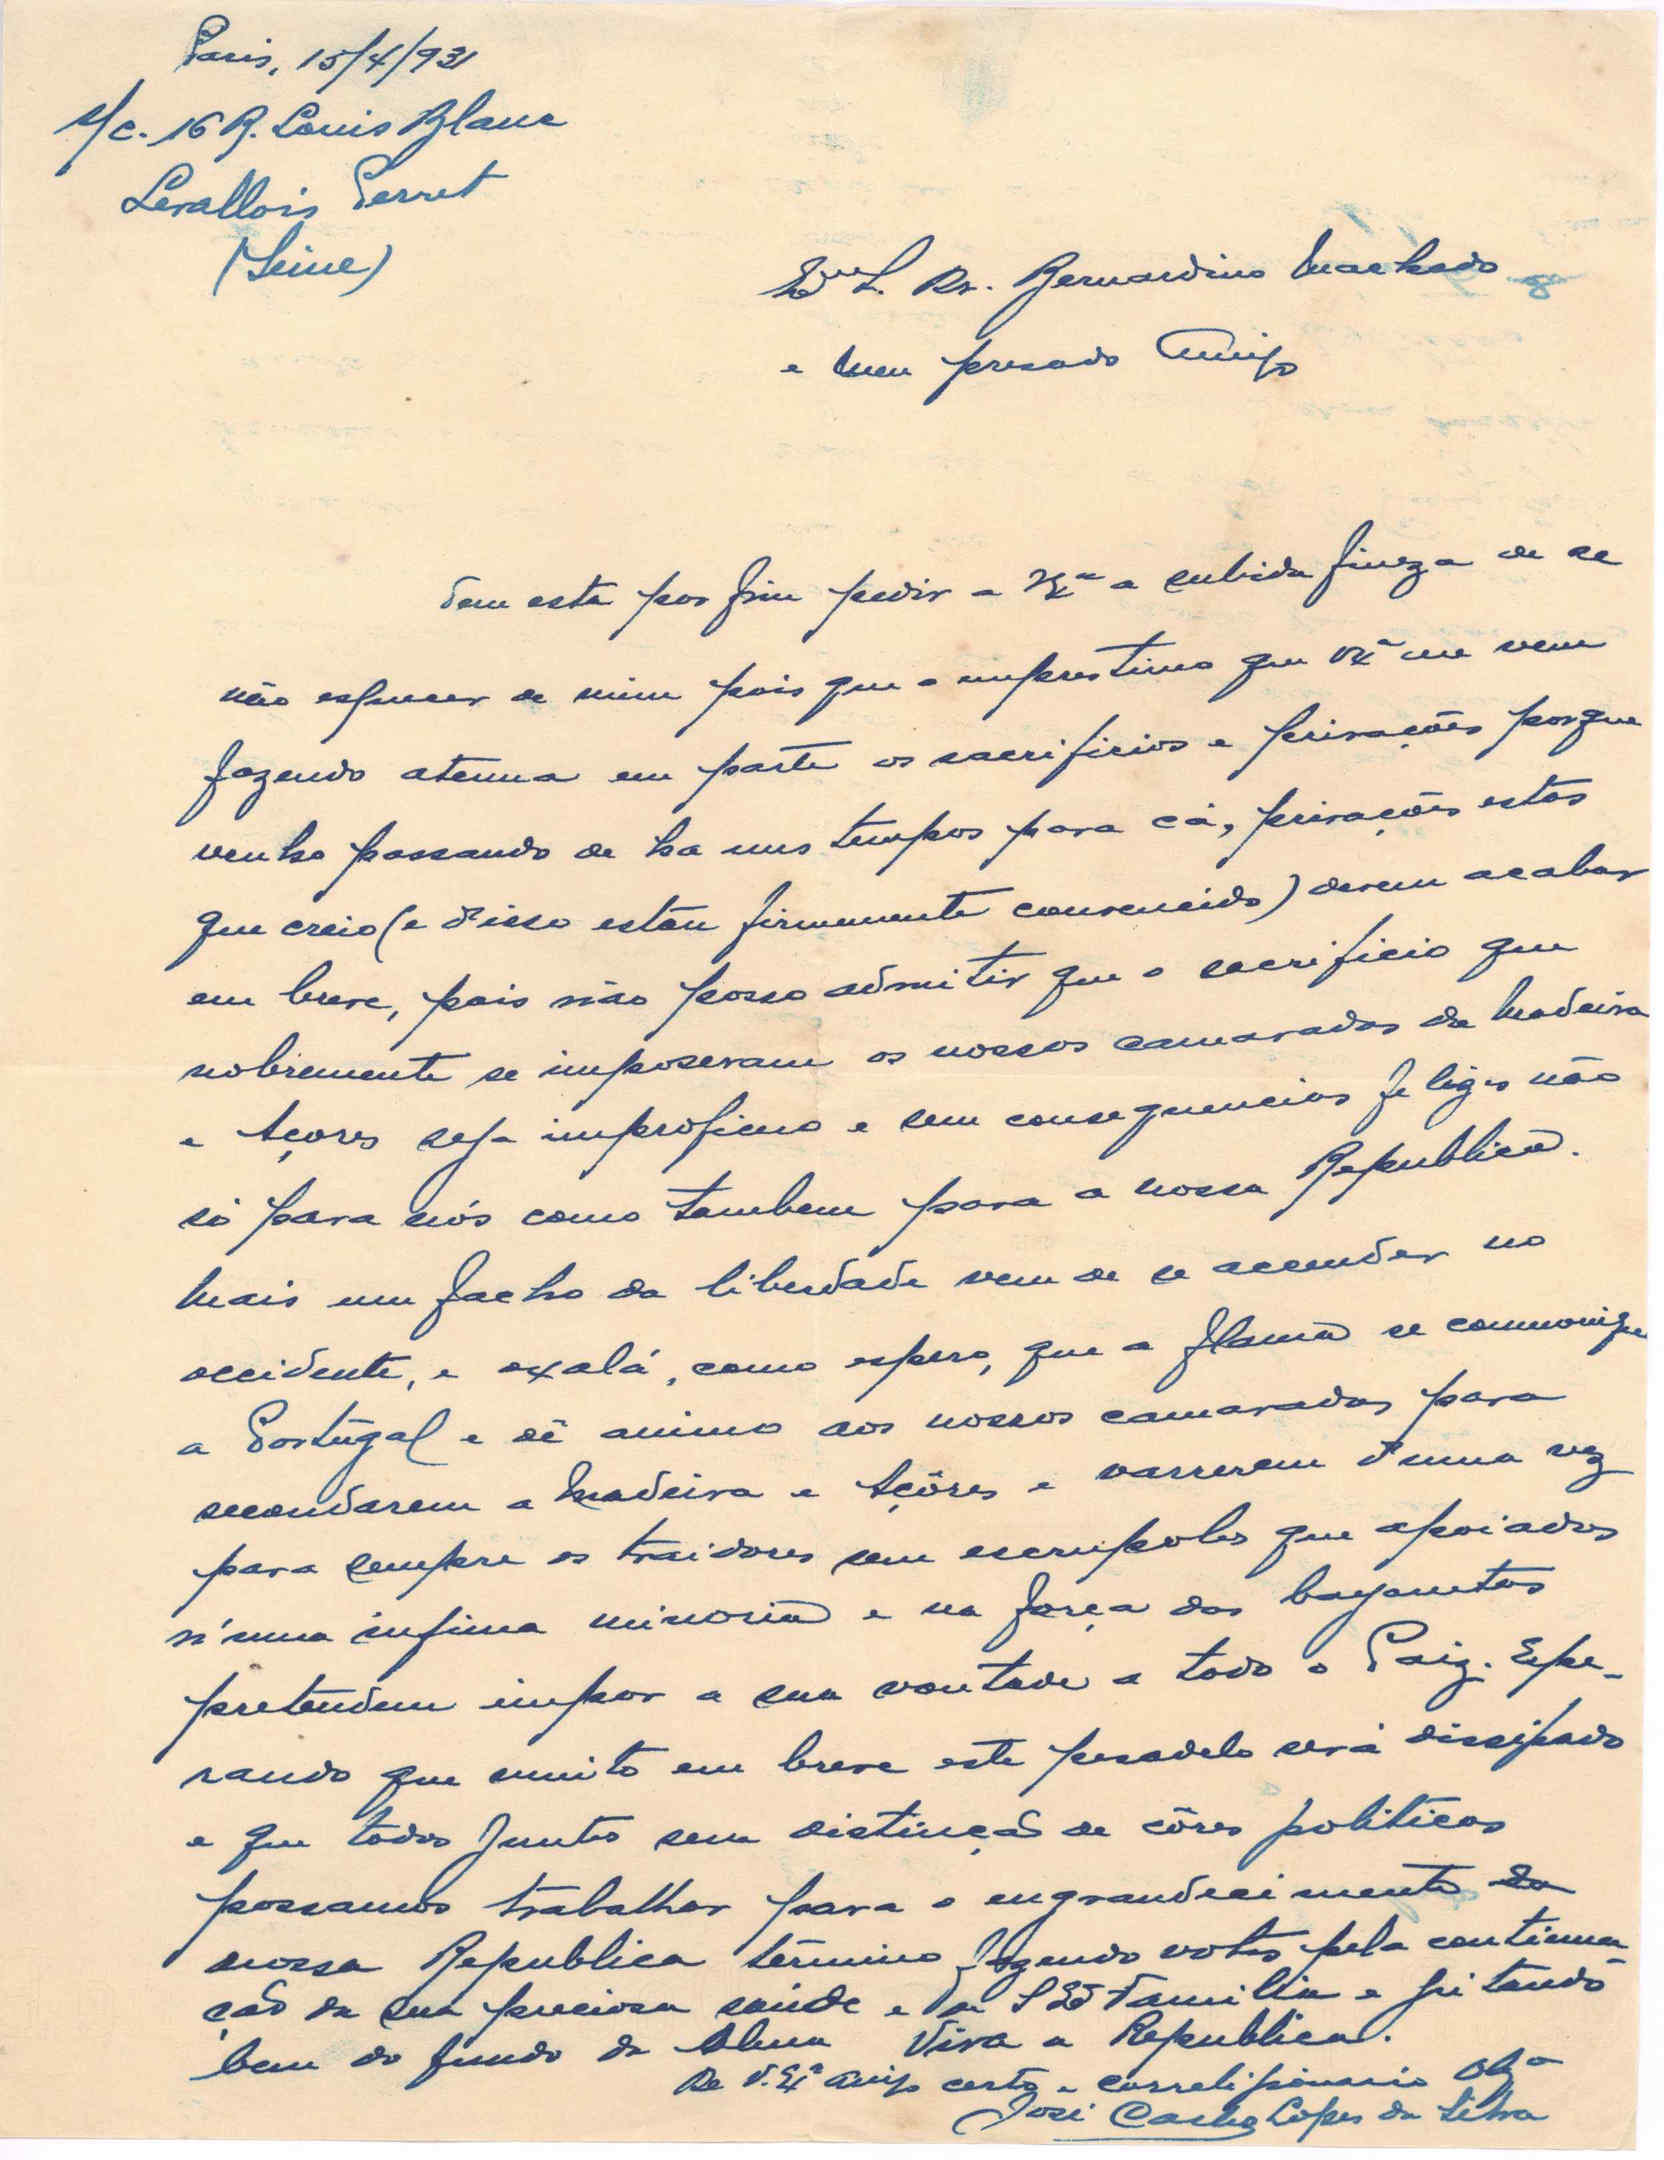 Paris, 15/4/931
s/c. 16 R. Louis Blanc
Levallois Perret
(Seine)
Exmo S. Dr. Bernardino Machado
e meu presado Amigo
Tem esta por fim pedir a V Exª a subida fineza de se
não esquecer de mim pois que o emprestimo que V Exª me vem
fazendo atenua em parte os sacrificios e privações porque
venho passando de ha uns tempos para cá, privações estas
que creio (e d'isso estou firmemente convencido) devem acabar
em breve, pois não posso admitir que o sacrificio que
nobremente se imposeram os nossos camaradas da Madeira
e Açores seja improficuo e sem consequencias felizes não
só para nós como tambem para a nossa Republica.
Mais um facho da liberdade vem de se acender no
occidente, e oxalá, como espero, que a flama se communique
a Portugal e dê animo aos nossos camaradas para
secondarem a Madeira e Açôres e varrerem d'uma vez
para sempre os traidores sem escrupolos que apoiados
n'uma infima minoria e na força das bayonetas
pretendem impor a sua vontade a todo o Paiz. Espe-
rando que muito em breve este pesadelo será dissipado
e que todos juntos sem distinção de côres politicas
possamos trabalhar para o engrandecimento da
nossa Republica têrmino fazendo votos pela continua
ção da sua preciosa saúde e de S Exª Familia e gritando
bem do fundo da Alma Viva a Republica.
De V. Exª Amigo certo e correligionario Obgº
José Carlos Lopes da Silva